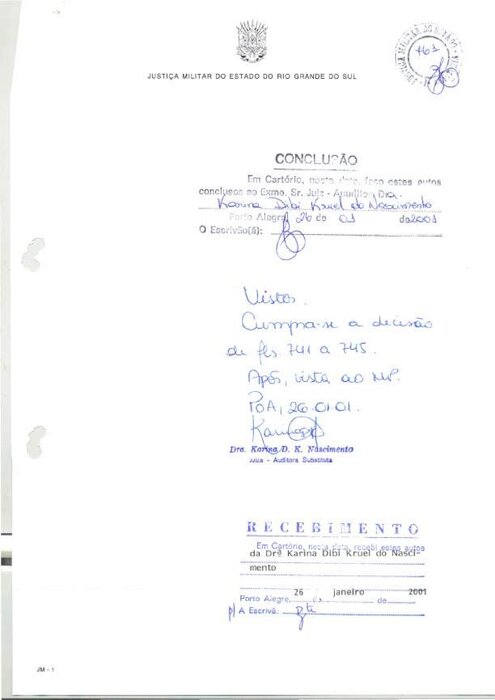 JUSTIÇA MILITAR DO ESTADO DO RIO GRANDE DO SUL
763
CONCLUSÃO
Em Cartório, nesta data, faço estes autos
conclusos ao Exmo. Sr. Juiz - Auditor Dra.
Karina Dibi Kruel do Nascimento
Porto Alegre, 26 de 01 de 2001
O Escrivão(ã):
Vistos.
Cumpra-se a decisão
de fls. 741 a 745.
Após, vista ao MP.
POA, 26.01.01.
Dra. Karina D. K. Nascimento
Juíza - Auditora Substituta
RECEBIMENTO
Em Cartório, nesta data, recebi estes autos
da Drª Karina Dibi Kruel do Nasci-
mento
Porto Alegre, 26 de janeiro de 2001
p/ A Escrivã:
JM - 1